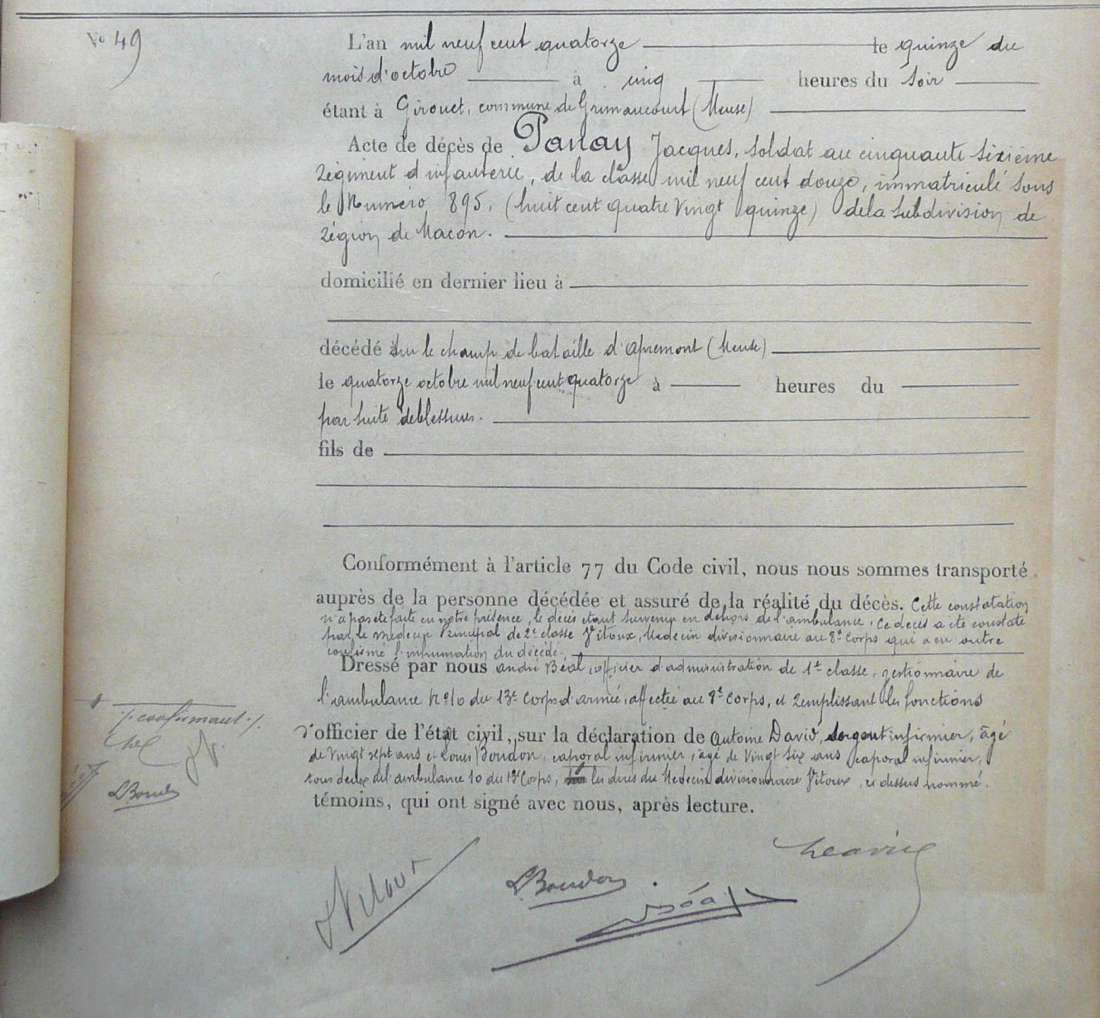 No 49
L'an mil neuf cent quatorze le quinze du
mois d'octobre à cinq heures du soir
étant à Girouet, commune de Grimaucourt (Meuse)
Acte de décès de Panay Jacques, soldat au cinquante sixième
régiment d'infanterie, de la classe mil neuf cent douze, immatriculé sous
le Numéro 895, (huit cent quatre vingt quinze) de la subdivision de
région de Macon.
domicilié en dernier lieu à
décédé sur le champ de bataille d'Apremont (Meuse)
le quatorze octobre mil neuf cent quatorze à heures du
par suite de blessures.
fils de
Conformément à l'article 77 du Code civil, nous nous sommes transporté
auprès de la personne décédée et assuré de la réalité du décès. Cette constatation
n'a pas été faite en notre présence, le décès étant survenu en dehors de l'ambulance. Ce décès a été constaté
par le médecin Principal de 2e classe Vitoux, Médecin divisionnaire au 8e Corps qui a en outre
confirmé l'inhumation du décédé.
Dressé par nous andré Béal, officier d'administration de 1re classe, gestionnaire de
l'ambulance No 10 du 13e Corps d'armée, affectée au 8e Corps, et remplissant les fonctions
d'officier de l'état civil, sur la déclaration de Antoine David, sergent infirmier, âgé
de vingt sept ans et Louis Boudon, caporal infirmier, âgé de vingt six ans caporal infirmier,
tous deux de l'ambulance 10 du 13e Corps, les dires du Médecin divisionnaire Vitoux, ci dessus nommé.
témoins, qui ont signé avec nous, après lecture.
confirmant
LBoudon
Béal